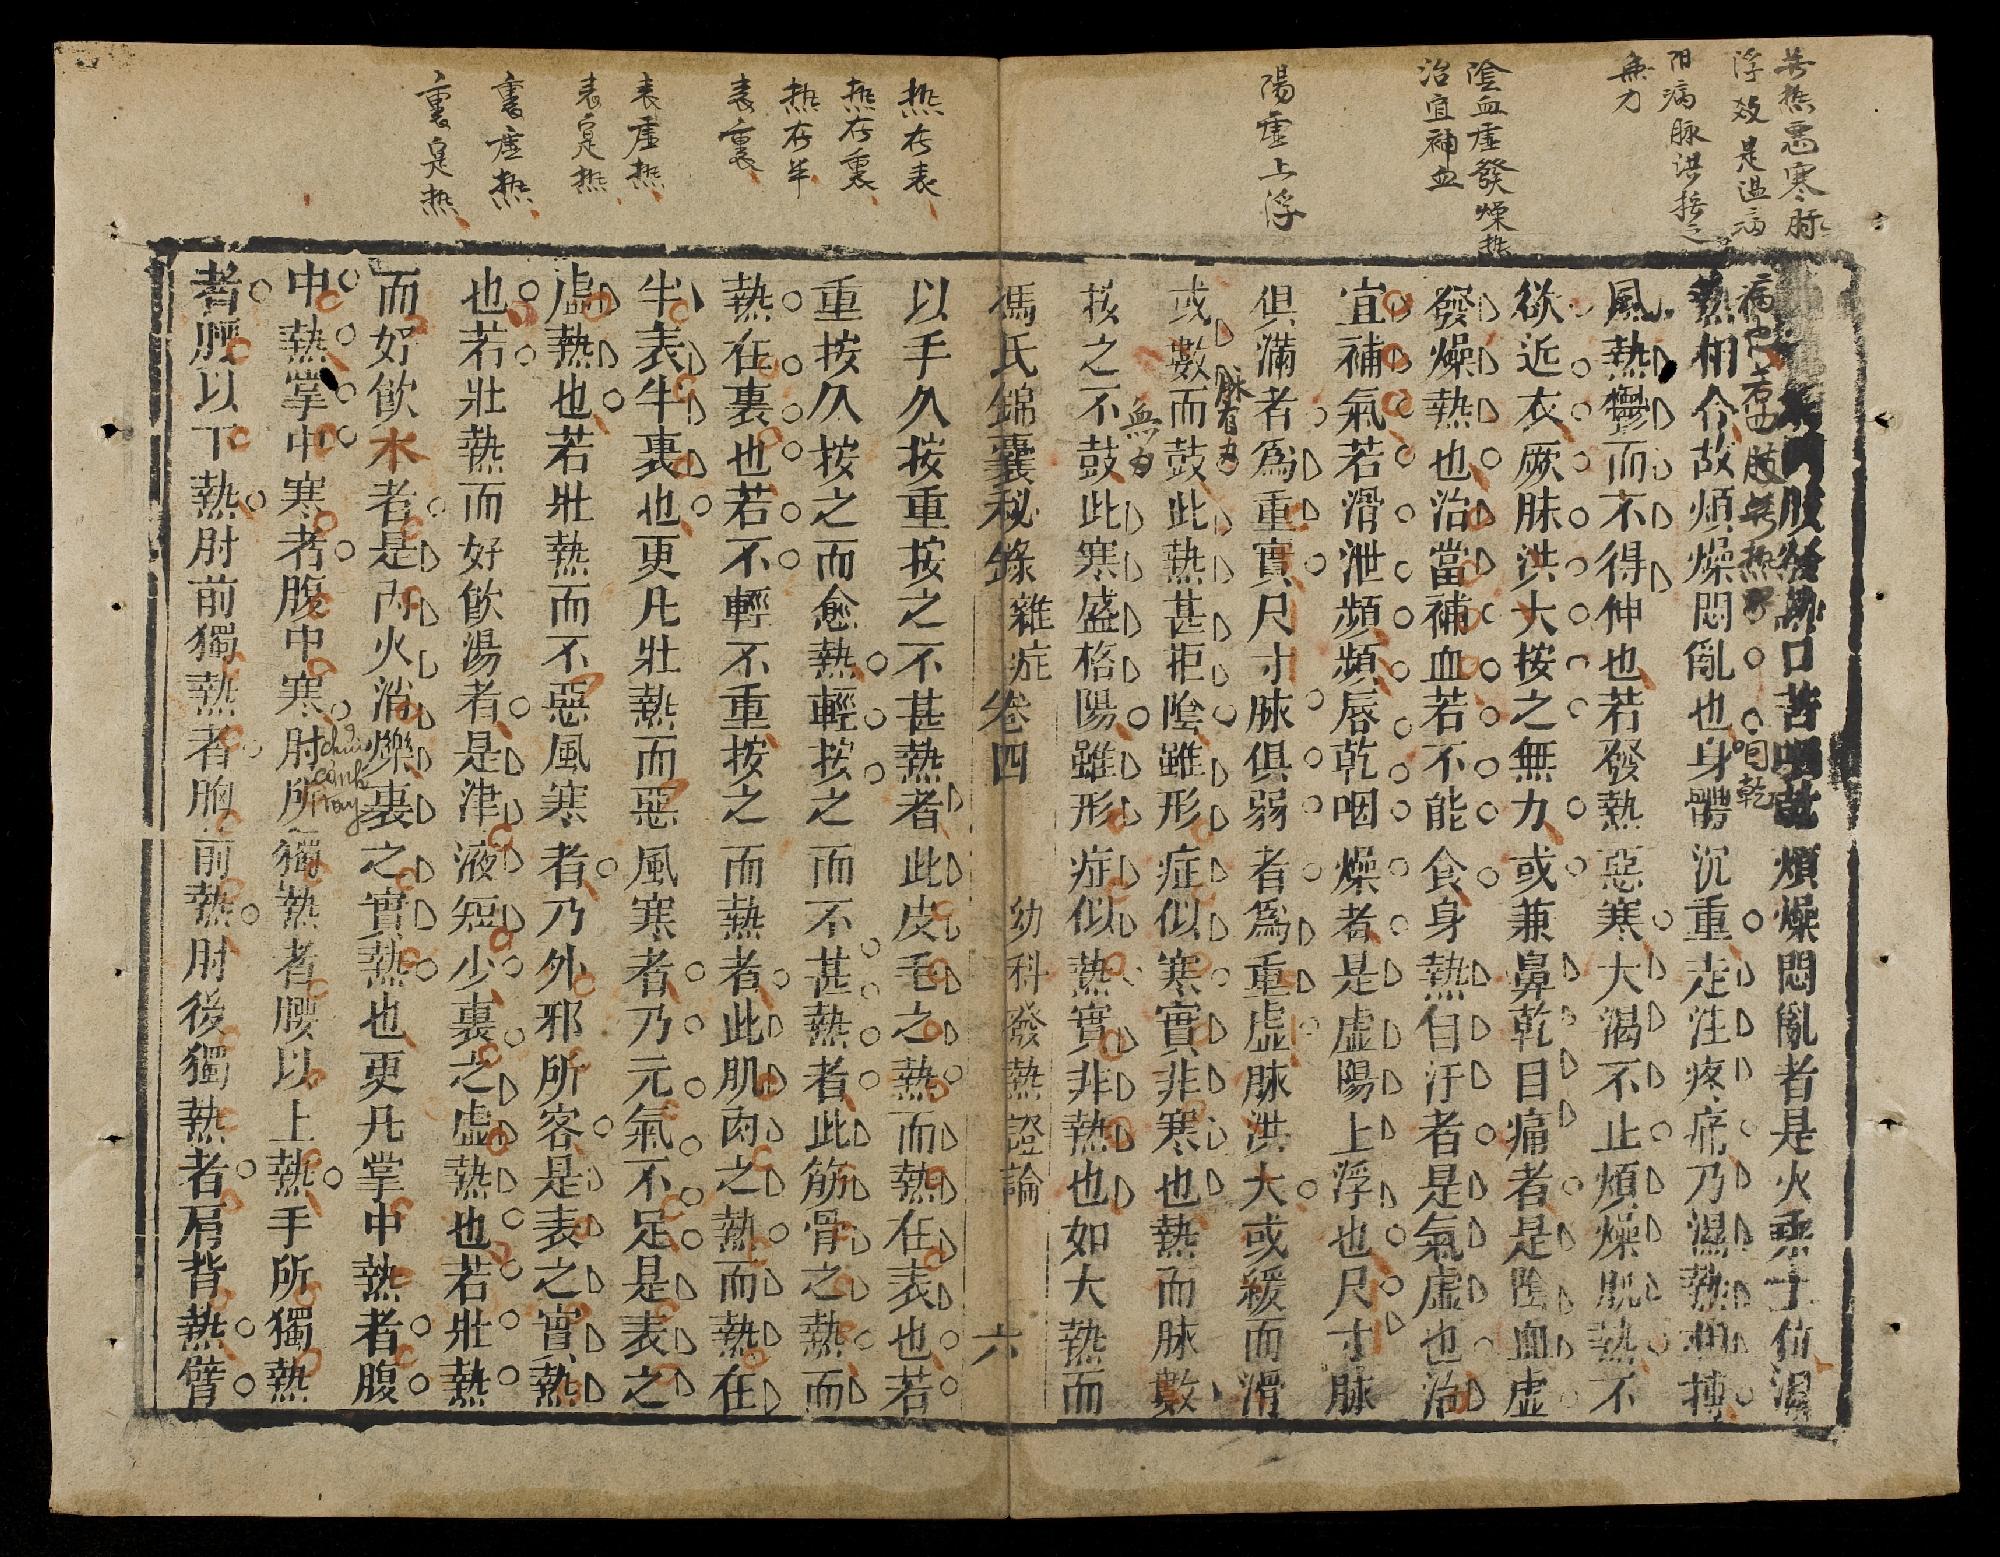 無熱惡寒肘
浮效是温病
阳病脉洪按之
無力
陰血虛發燥熱
治宜補血
陽虛上浮
熱在表
熱在裏
熱在半
表裏
表虛熱
表寔熱
裏虛熱
裏寔熱
病也若四肢無熱
咽乾
口苦咽乾煩燥悶亂者是火乘于竹濕
熱相合故煩燥悶亂也身體沉重走注疼痛乃濕熱相搏
風熱鬱而不得伸也若發熱惡寒大渴不止煩燥肌熱不
欲近衣厥脉洪大按之無力或兼鼻乾目痛者是陰血虛
發燥熱也治當補血若不能食身熱自汗者是氣虛也治
宜補氣若滑泄頻頻唇乾咽燥者是虛陽上浮也尺寸脉
俱滿者爲重實尺寸脉俱弱者爲重虛脉洪大或緩而滑
脉有力
或數而鼓此熱甚拒陰雖形症似寒實非寒也熱而脉數
無力
按之不鼓此寒盛格陽雖形症似熱實非熱也如大熱而
馮氏錦囊秘錄 雜症卷四 幼科發熱證論 六
以手久按重按之不甚熱者此皮毛之熱而熱在表也若
重按久按之而愈熱輕按之而不甚熱者此筋骨之熱而
熱在裏也若不輕不重按之而熱者此肌肉之熱而熱在
半表半裏也更凡壯熱而惡風寒者乃元氣不足是表之
虛熱也若壯熱而不惡風寒者乃外邪所客是表之實熱
也若壯熱而好飲湯者是津液短少裏之虛熱也若壯熱
而好飲水者是內火消爍裏之實熱也更凡掌中熱者腹
中熱掌中寒者腹中寒肘所獨熱者腰以上熱手所獨熱
chui cánh tay
者腰以下熱肘前獨熱者胸前熱肘後獨熱者肩背熱臂